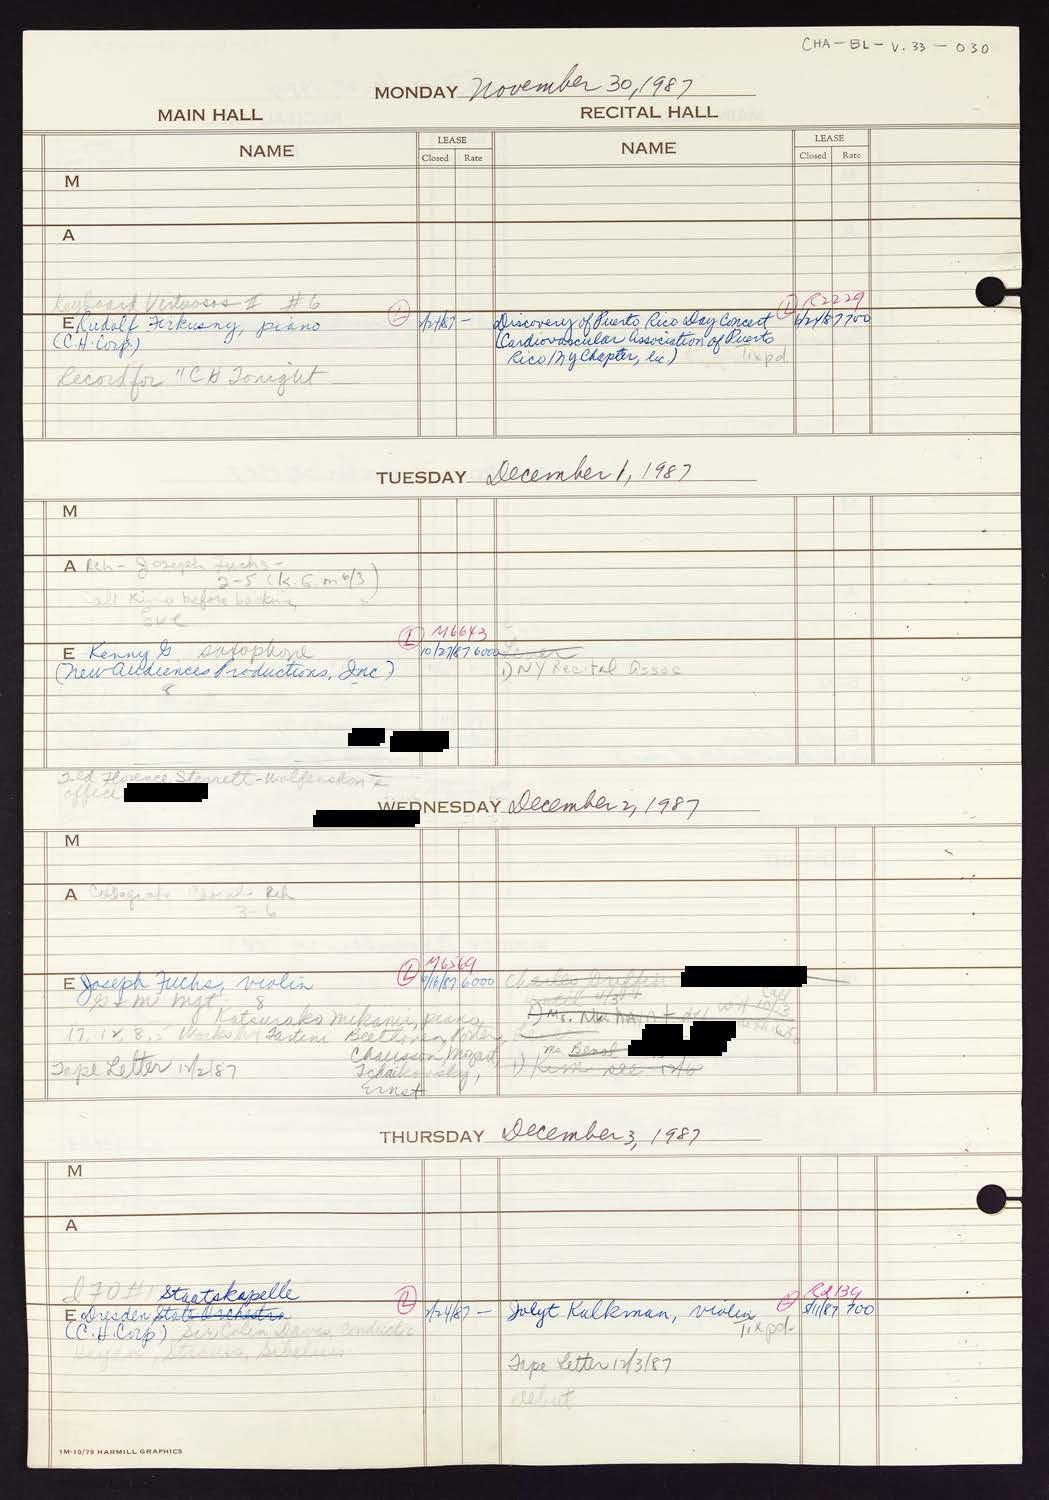 CHA-BL-V.33-030
MONDAY November 30, 1987
MAIN HALL RECITAL HALL
NAME LEASE NAME LEASE
Closed Rate Closed Rate
M
A
Keyboard Virtuosos II #6
E Rudolf Firkusny, piano (L) 1/21/87 - Discovery of Puerto Rico Day Concert (L) R2229 6/24/87 700
(C.H. Corp.) (Cardiovascular Association of Puerto
Rico/NY Chapter, Inc) Tix pd.
Record for "CH Tonight
TUESDAY December 1, 1987
M
A Reh - Joseph Fuchs -
2-5 (K.G. on 6/3)
Call Kino before booking
Eve
(L) M6643
E Kenny G saxophone 10/27/87 6000
(New Audiences Productions, Inc) 1) NY Recital Assoc
8
Told Florence Sterrett-Wolfensohn's
office
WEDNESDAY December 2, 1987
M
A Collegiate Choral Reh
3-6
(L) M6569
E Joseph Fuchs, violin 9/16/87 6000 Charles Griffin
G&M Mgt. 8 until 4/30
Katsurako Mikami, piano,
17, 12, 8, 5 Works by Tartini Beethoven,
Chausson, Mozart, Ms. Benal
Tape Letter 12/2/87 Tchaikovsky, 1) Kim see 12/6
Ernst
THURSDAY December 3, 1987
M
A
IFO #1 Staatskapelle
E Dresden State Orchestra (L) 1/24/87 - Jolyt Kalkman, violin (L) Rd139 5/11/87 700
(C.H. Corp) Sir Colin Davis, conductor Tix pd-
Strauss, Sibelius
Tape Letter 12/3/87
debut
1M-10/79 HARMILL GRAPHICS